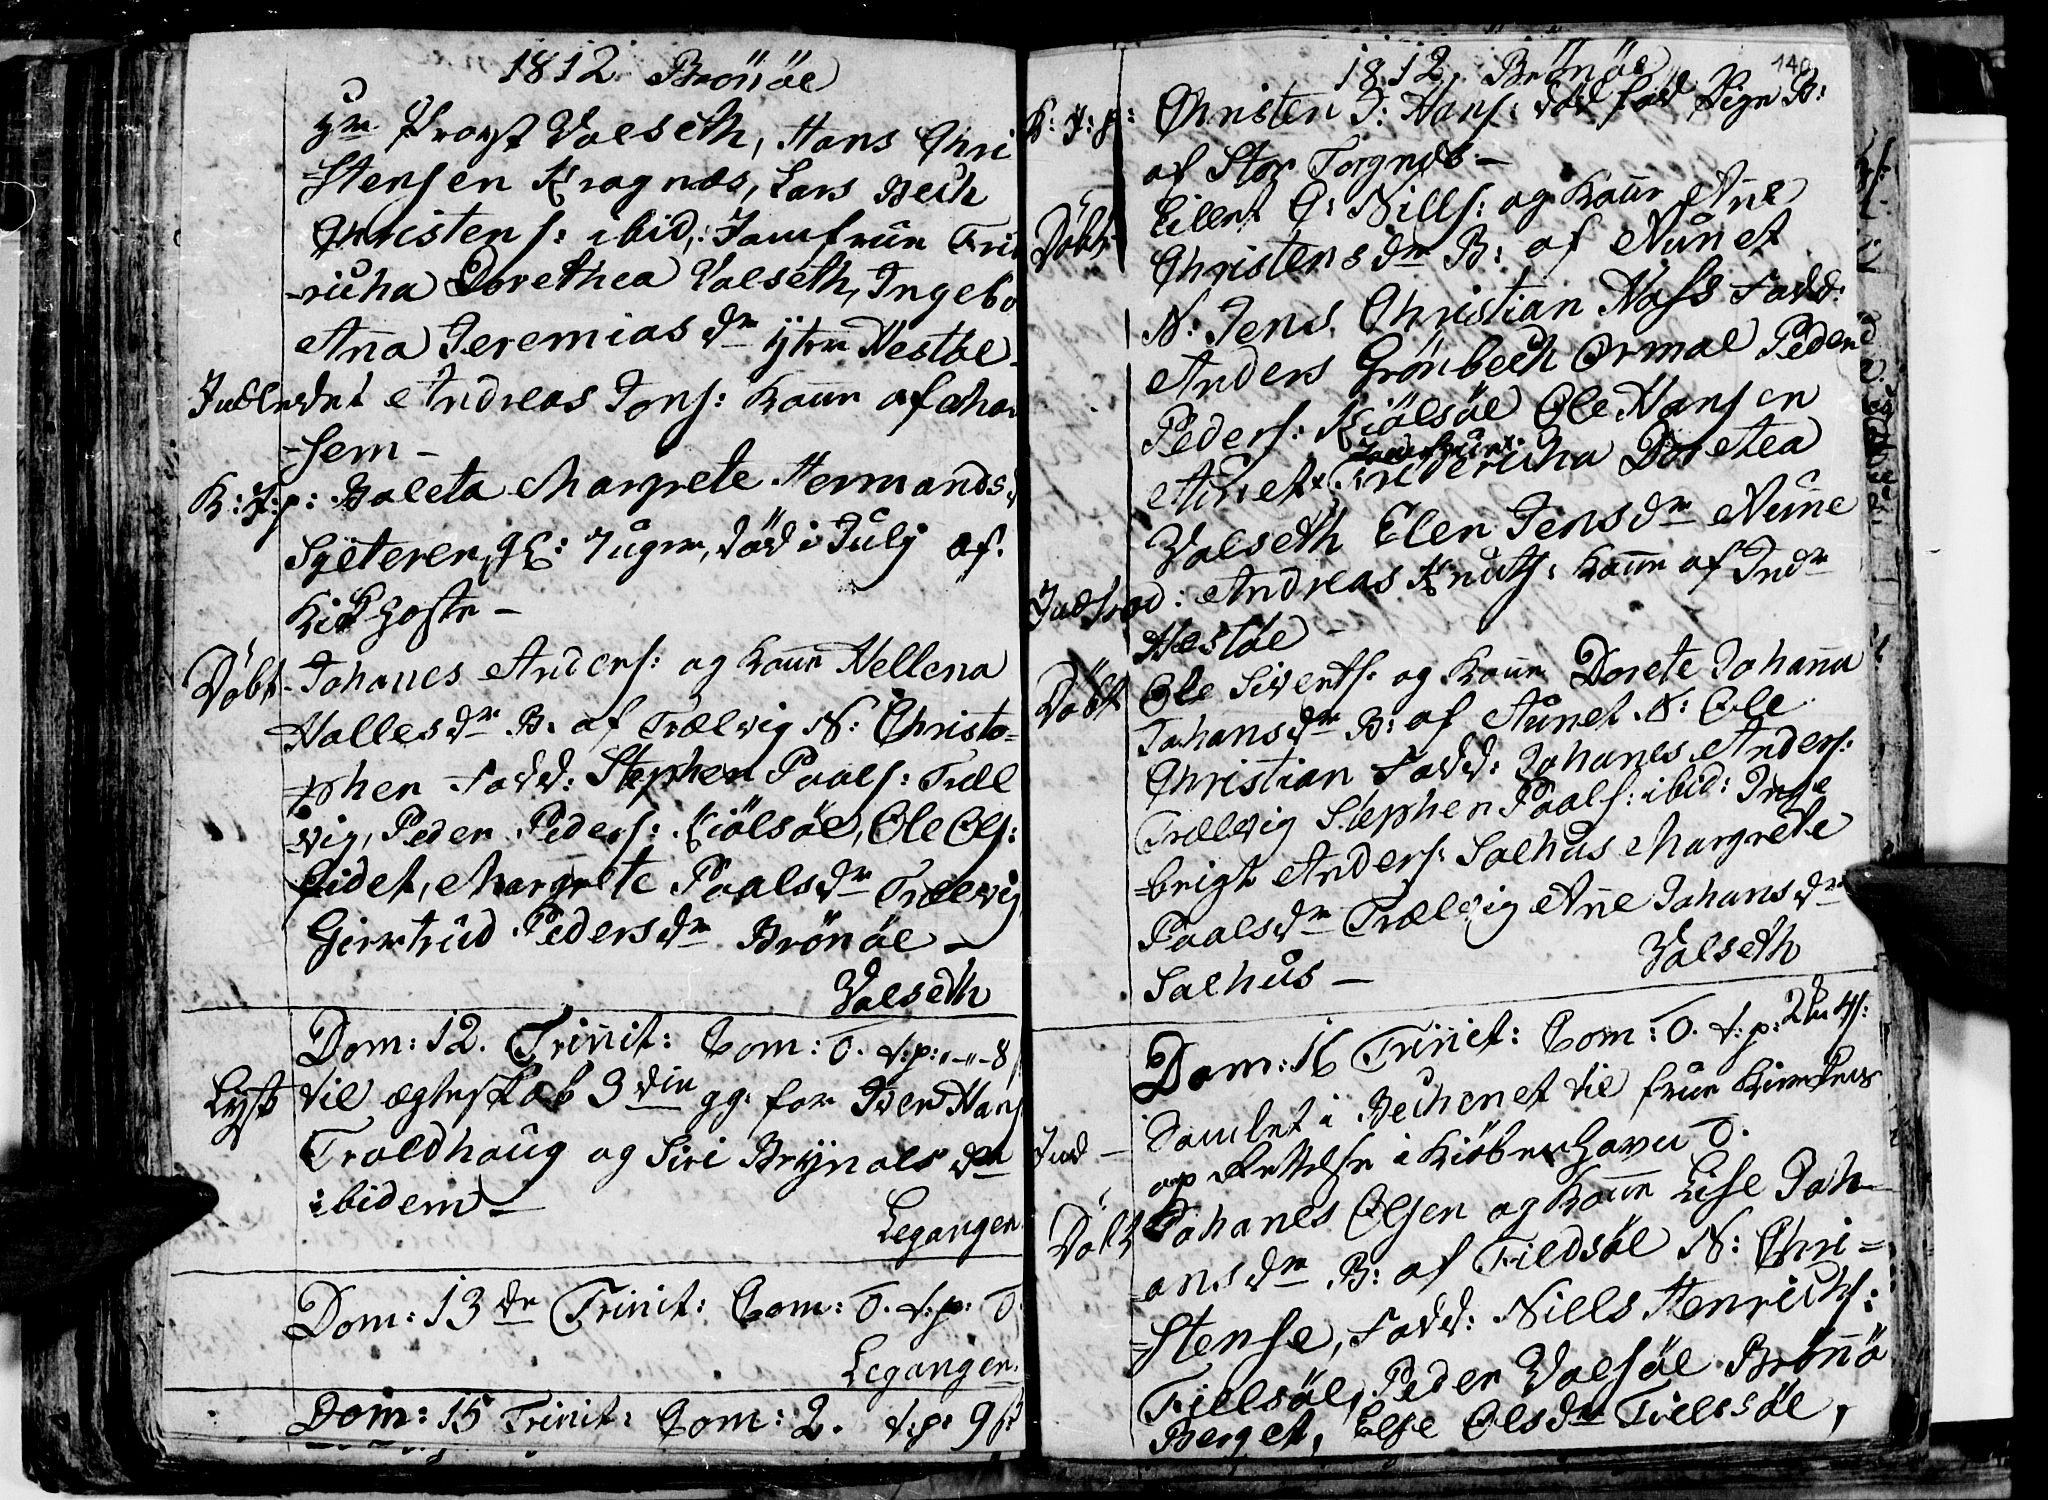 1812 Brönöe
Hr Provst Valseth, Hans Chri
-stensen Kragnæs, Lars Bech
Christens: ibid: Jomfrue Frie
-richa Dorethea Valseth, Ingeb
Aña Jeremiasdr ytre Hestöe
Indledet Andreas Jons: Kone af Mar
-sem -
K: J: p: Baleta Margrete Hermandsd
Syeteren, gl: 7 uger, död i July af
Kikhoste -
Döbt Johanes Anders: og Kone Hellena
Hallesdr B. af Trælvig N: Christo-
pher Fadd: Stephen Paals: Træl
vig, Peder Peders: Kiölsöe, Ole Ols:
Eidet, Margrete Paalsdr Trælvig
Giertrud Pedersdr Brönöe -
Valseth
Dom: 12. Trinit: Com: 0. t: p: 8
Lyst til ægteskab 3die gg: for Iver Hans
Troldhaug og Siri Brynalsdr
ibidem -
Legangen
Dom: 13de Trinit: Com: 0. t: p: 0
Legangen.
Dom: 15 Trinit: Com: 2. t: p: 9
1812. Brönöe 140.
K: J: p: Christen J: Hans: död föd Pige B:
af Stor Torgnæs -
Döbt Eilert C: Nills: og Kone Añe
Christensdr B: af Aunet
N: Jens Christian Hass Fadd:
Anders Grönbech Ormöe Peder
Peders: Kiölsöe Ole Hansen
Jomfrue
Aunet Friedericha Doretea
Valseth Elen Jensdr Aune
Indled: Andreas Knuts: Kone af Indr
Hestöe -
Döbt Ole Siverts: og Kone Dorete Johaña
Johansdr B: af Aunet N: Ole
Christian Fadd: Johanes Anders:
Trælvig Stephen Paals: ibid: Inge
-brigt Anders: Salhus Margrete
Paalsdr Trælvig Añe Johansdr
Salhus -
Valseth
Dom: 16 Trinit: Com: 0. t: p: 2
Samlet i Bechenet til
Ind - op Rettelse i Kiöbenhavn 0.
Döbt Johanes Olsen og Kone Lise Joh-
ansdr B: af Fieldsöe N: Chri=
=stense, Fadd: Niells Henrichs:
Fiellsöe, Peder Valsöe Brönö
Berget, Else Olsdr Fiellsöe,